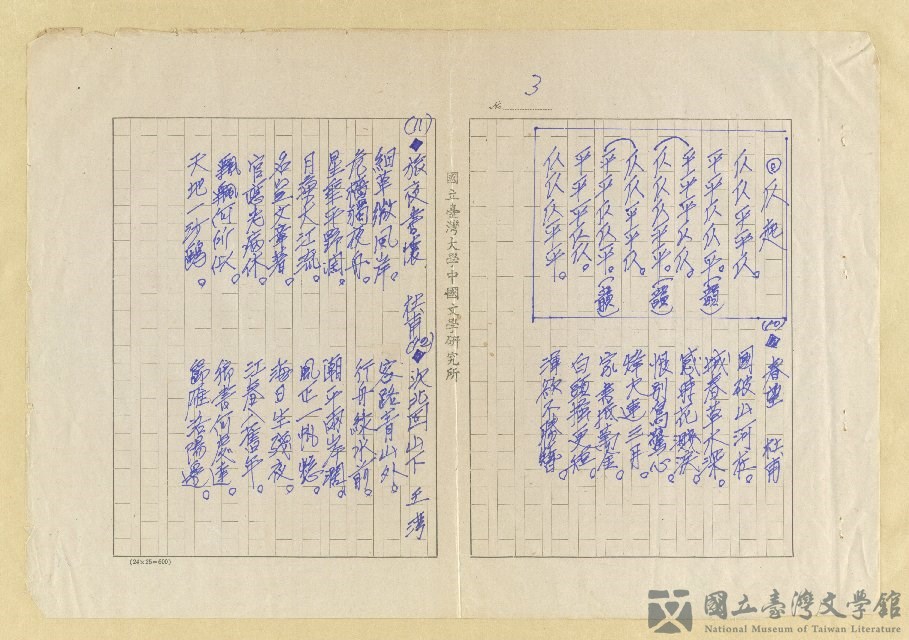 № 3
仄起
仄仄平平仄。
平平仄仄平。(韻)
平平平仄仄。
仄仄仄平平。(韻)
仄仄平平仄。
平平仄仄平。(韻)
平平平仄仄。
仄仄仄平平。
(10)◆春望 杜甫
國破山河在。
城春草木深。
感時花濺淚。
恨別鳥驚心。
烽火連三月。
家書抵萬金。
白頭搔更短。
渾欲不勝簪。
國立臺灣大學中國文學研究所
(11)◆旅夜書懷 杜甫
細草微風岸。
危檣獨夜舟。
星垂平野闊。
月湧大江流。
名豈文章著。
官應老病休。
飄飄何所似。
天地一沙鷗。
(12)◆次北固山下 王灣
客路青山外。
行舟綠水前。
潮平兩岸闊。
風正一帆懸。
海日生殘夜。
江春入舊年。
鄉書何處達。
歸雁洛陽邊。
(24×25=600)
國立臺灣文學館
National Museum of Taiwan Literature